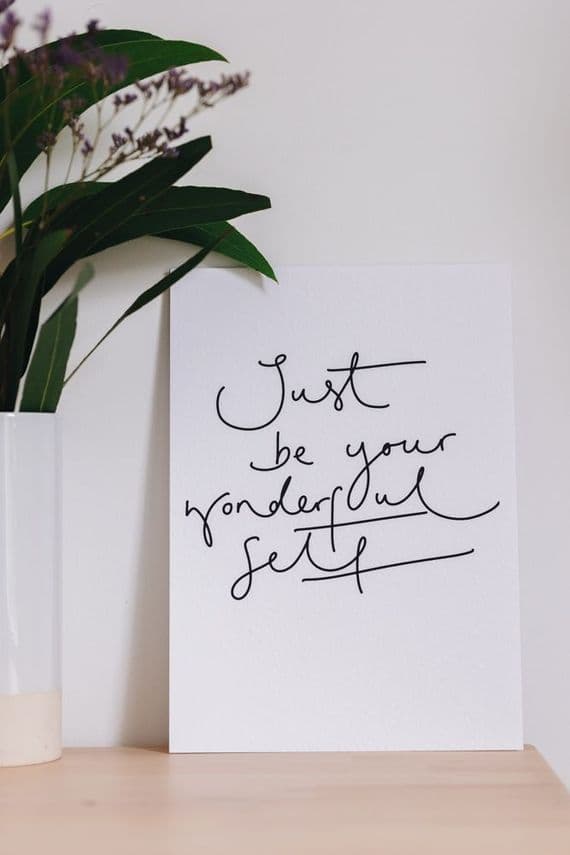 Just
be your
wonderful
self